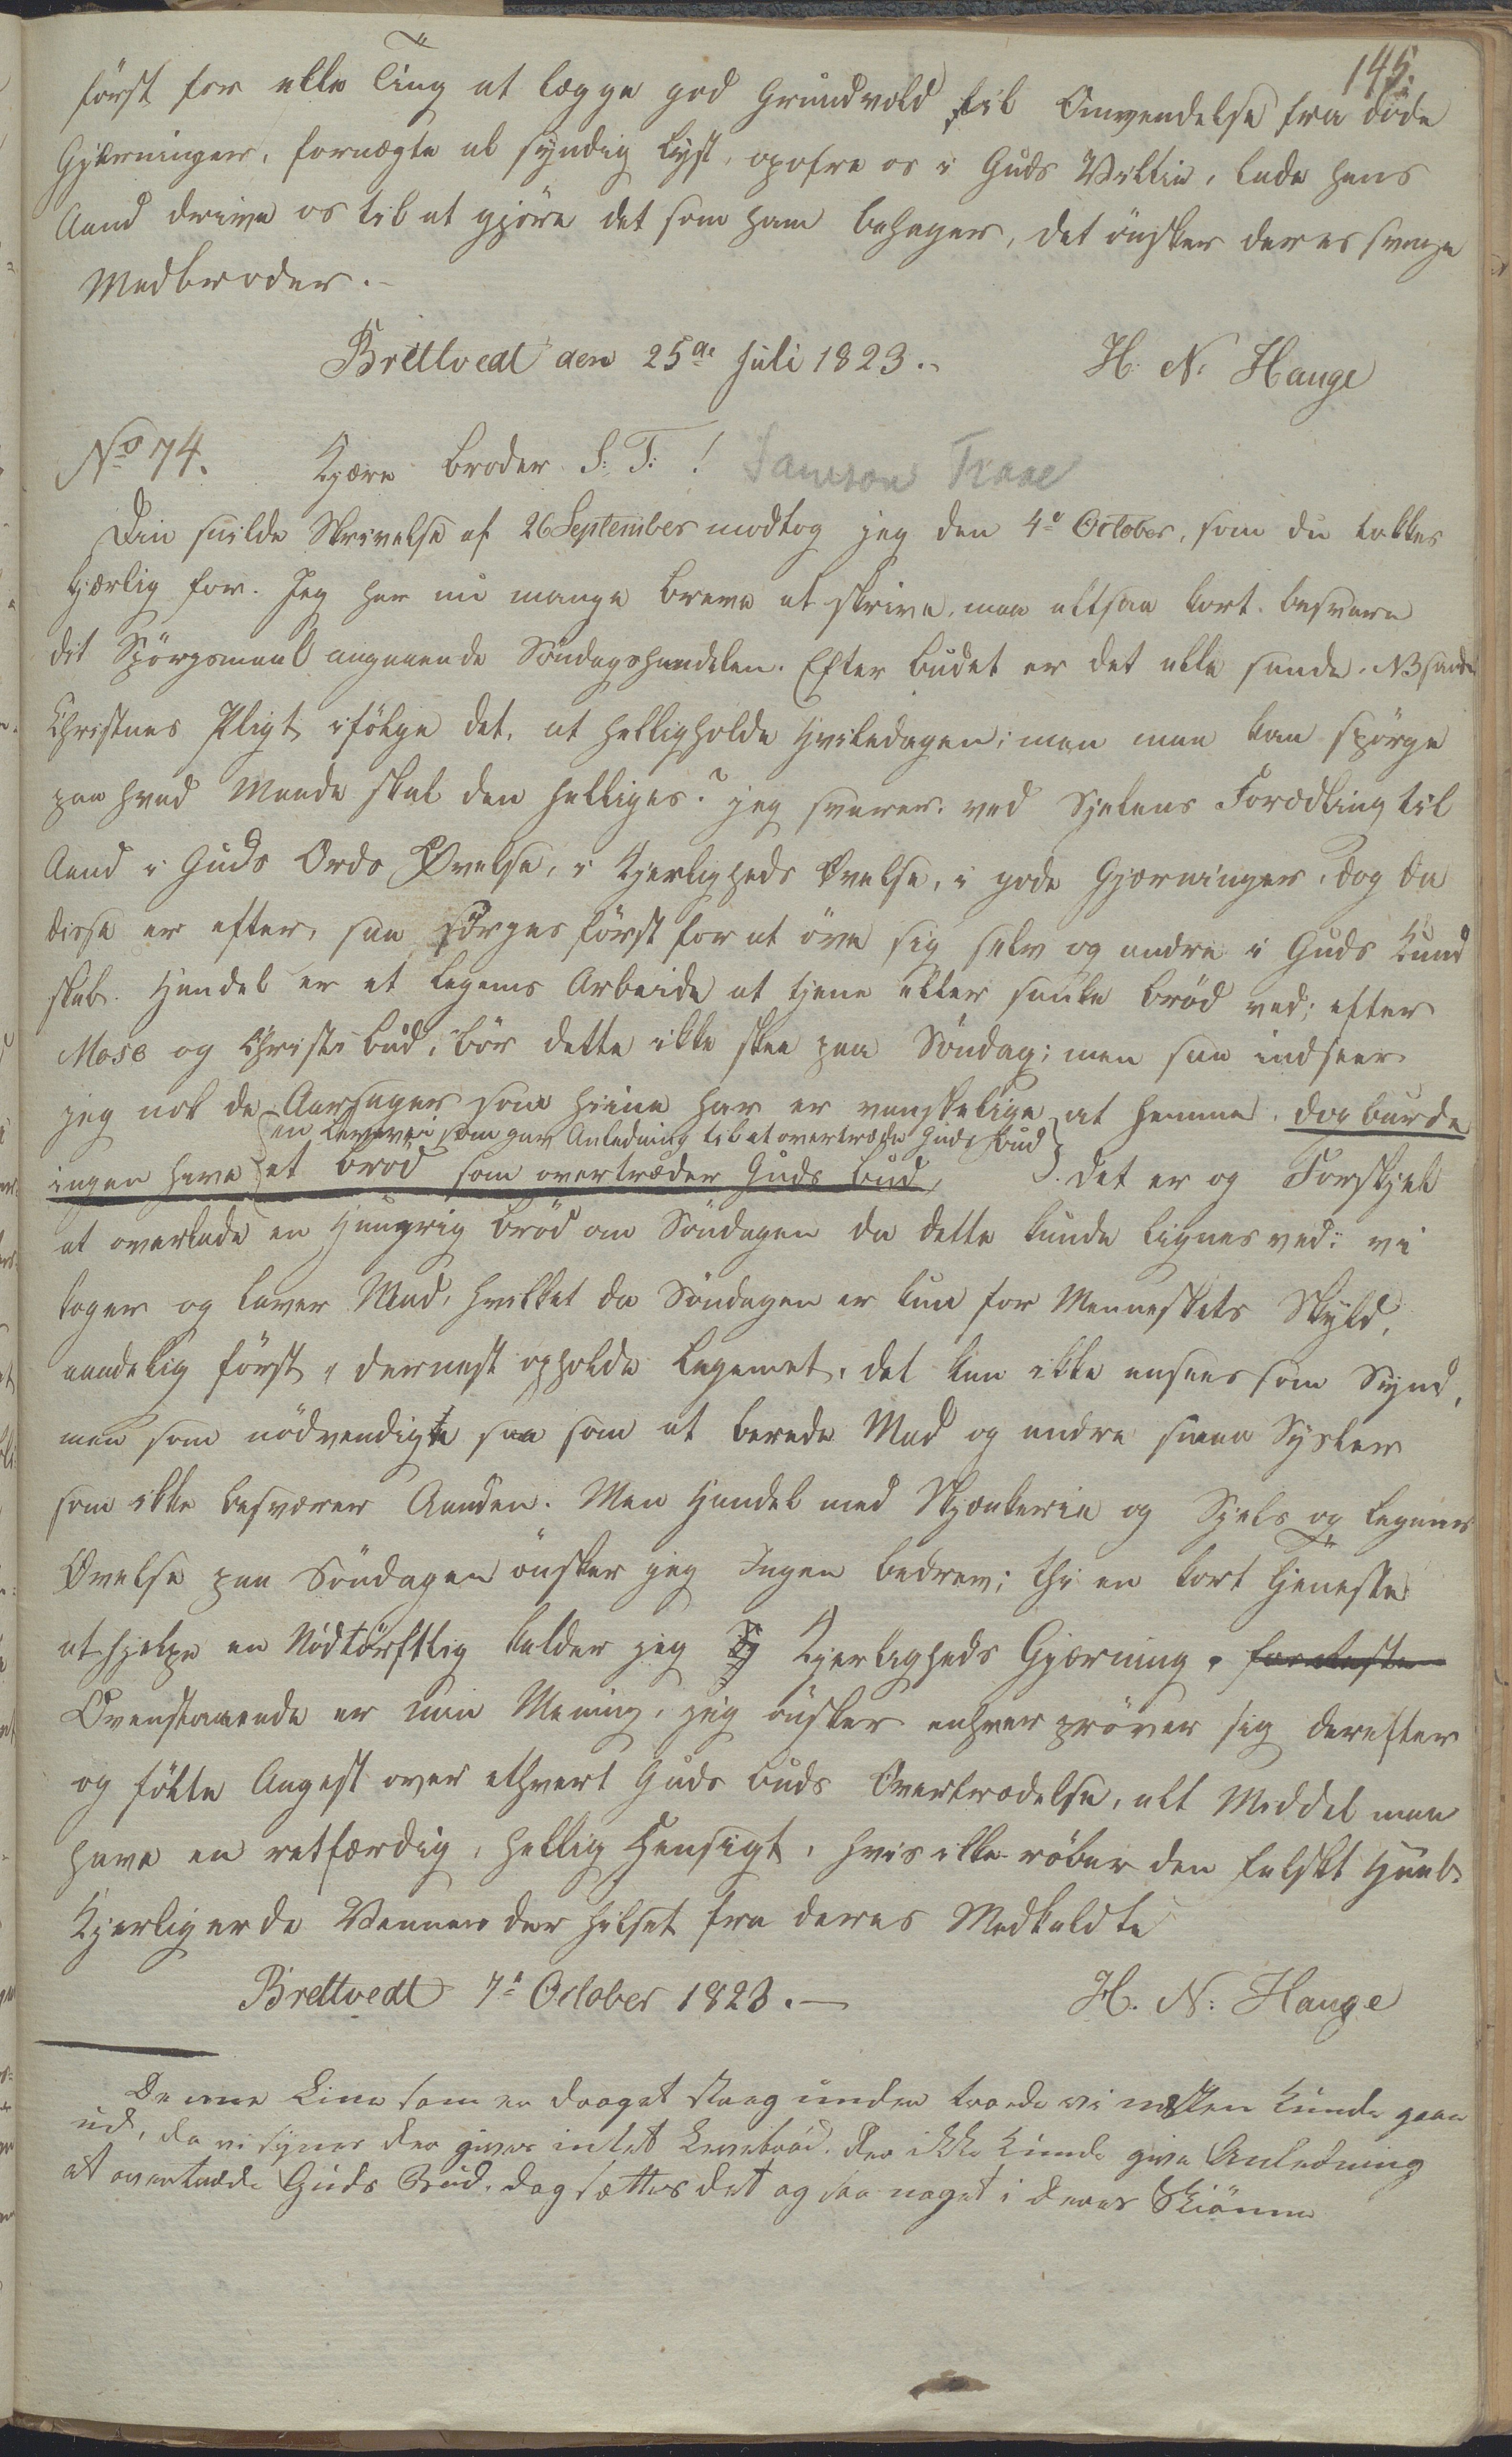 145.
först for alle Ting at lægge god Grundvold til Omvendelse fra døde
Gjærninger, fornægte al syndig Lyst, opofre os i Guds Villie, lade hans
Aand drive os til at gjöre det som ham behager, det önsker deres svage
Medbroder.-
Brettvedt den 25de Juli 1823.-
H. N. Hauge
No 74.
Kjære Broder S: T: ! Samson Traae
Din milde Skrivelse af 26 September modtog jeg den 4de October, som du takkes
kjærlig for. Jeg har nu mange Breve at skrive, maa altsaa kort besvare
dit Spörgsmaal angaaende Söndagshandelen. Efter Budet er det alle sande. NB sande
Christnes Pligt ifölge det, at helligholde Hviledagen; men man kan spörge
paa hvad Maade skal den helliges? jeg svarer: ved Sjelens Forædling til
Aand i Guds Ords Øvelse, i Kjerligheds Øvelse, i gode Gjerninger, dog da
disse er efter, saa sörges först for at öve sig selv og andre i Guds Kund
skab. Handel er et Legems Arbeide at tjene eller sanke Bröd ved; efter
Mose og Christi Bud, bör dette ikke skee paa Söndag; men saa indseer
jeg nok de Aarsager som hiine har er vanskelige at hemme. dog burde
en Levevei som gav Anledning til at overtræde Guds Bud
ingen have et Bröd som overtræder Guds Bud, . det er og Forskjel
at overlade en Hungrig Bröd om Söndagen da dette kunde lignes ved: vi
koger og laver Mad, hvilket da Söndagen er kun for Menneskets Skyld,
aandelig först, dernest opholde Legemet, det kan ikke ansees som Synd,
men som nödvendigte saa som at berede Mad og andre smaa Sysler
som ikke besværer Aanden. Men Handel med Skjænkerie og Sjels og Legems
Øvelse paa Söndagen önsker jeg Ingen bedrev; thi en kort Tjeneste
at hjelpe en Nödtörftlig kalder jeg Kjerligheds Gjærning.
Ovenstaaende er min Mening, jeg önsker enhver pröver sig derefter
og fölte Angest over ethvert Guds Buds Overtrædelse, alt Middel maa
have en retfærdig, hellig Hensigt, hvis ikke röber den falskt Haab.
Kjerlig er de Venner der hilset fra deres Medkaldte
Brettvedt 7de October 1823.-
H. N: Hauge
Denne Linie som er draget Streg under troede vi næsten kunde gaae
ud, da vi synes der gives intet Levebröd, der ikke kunde give Anledning
at overtræde Guds Bud, dog sættes det og saa noget i deres Skiönne